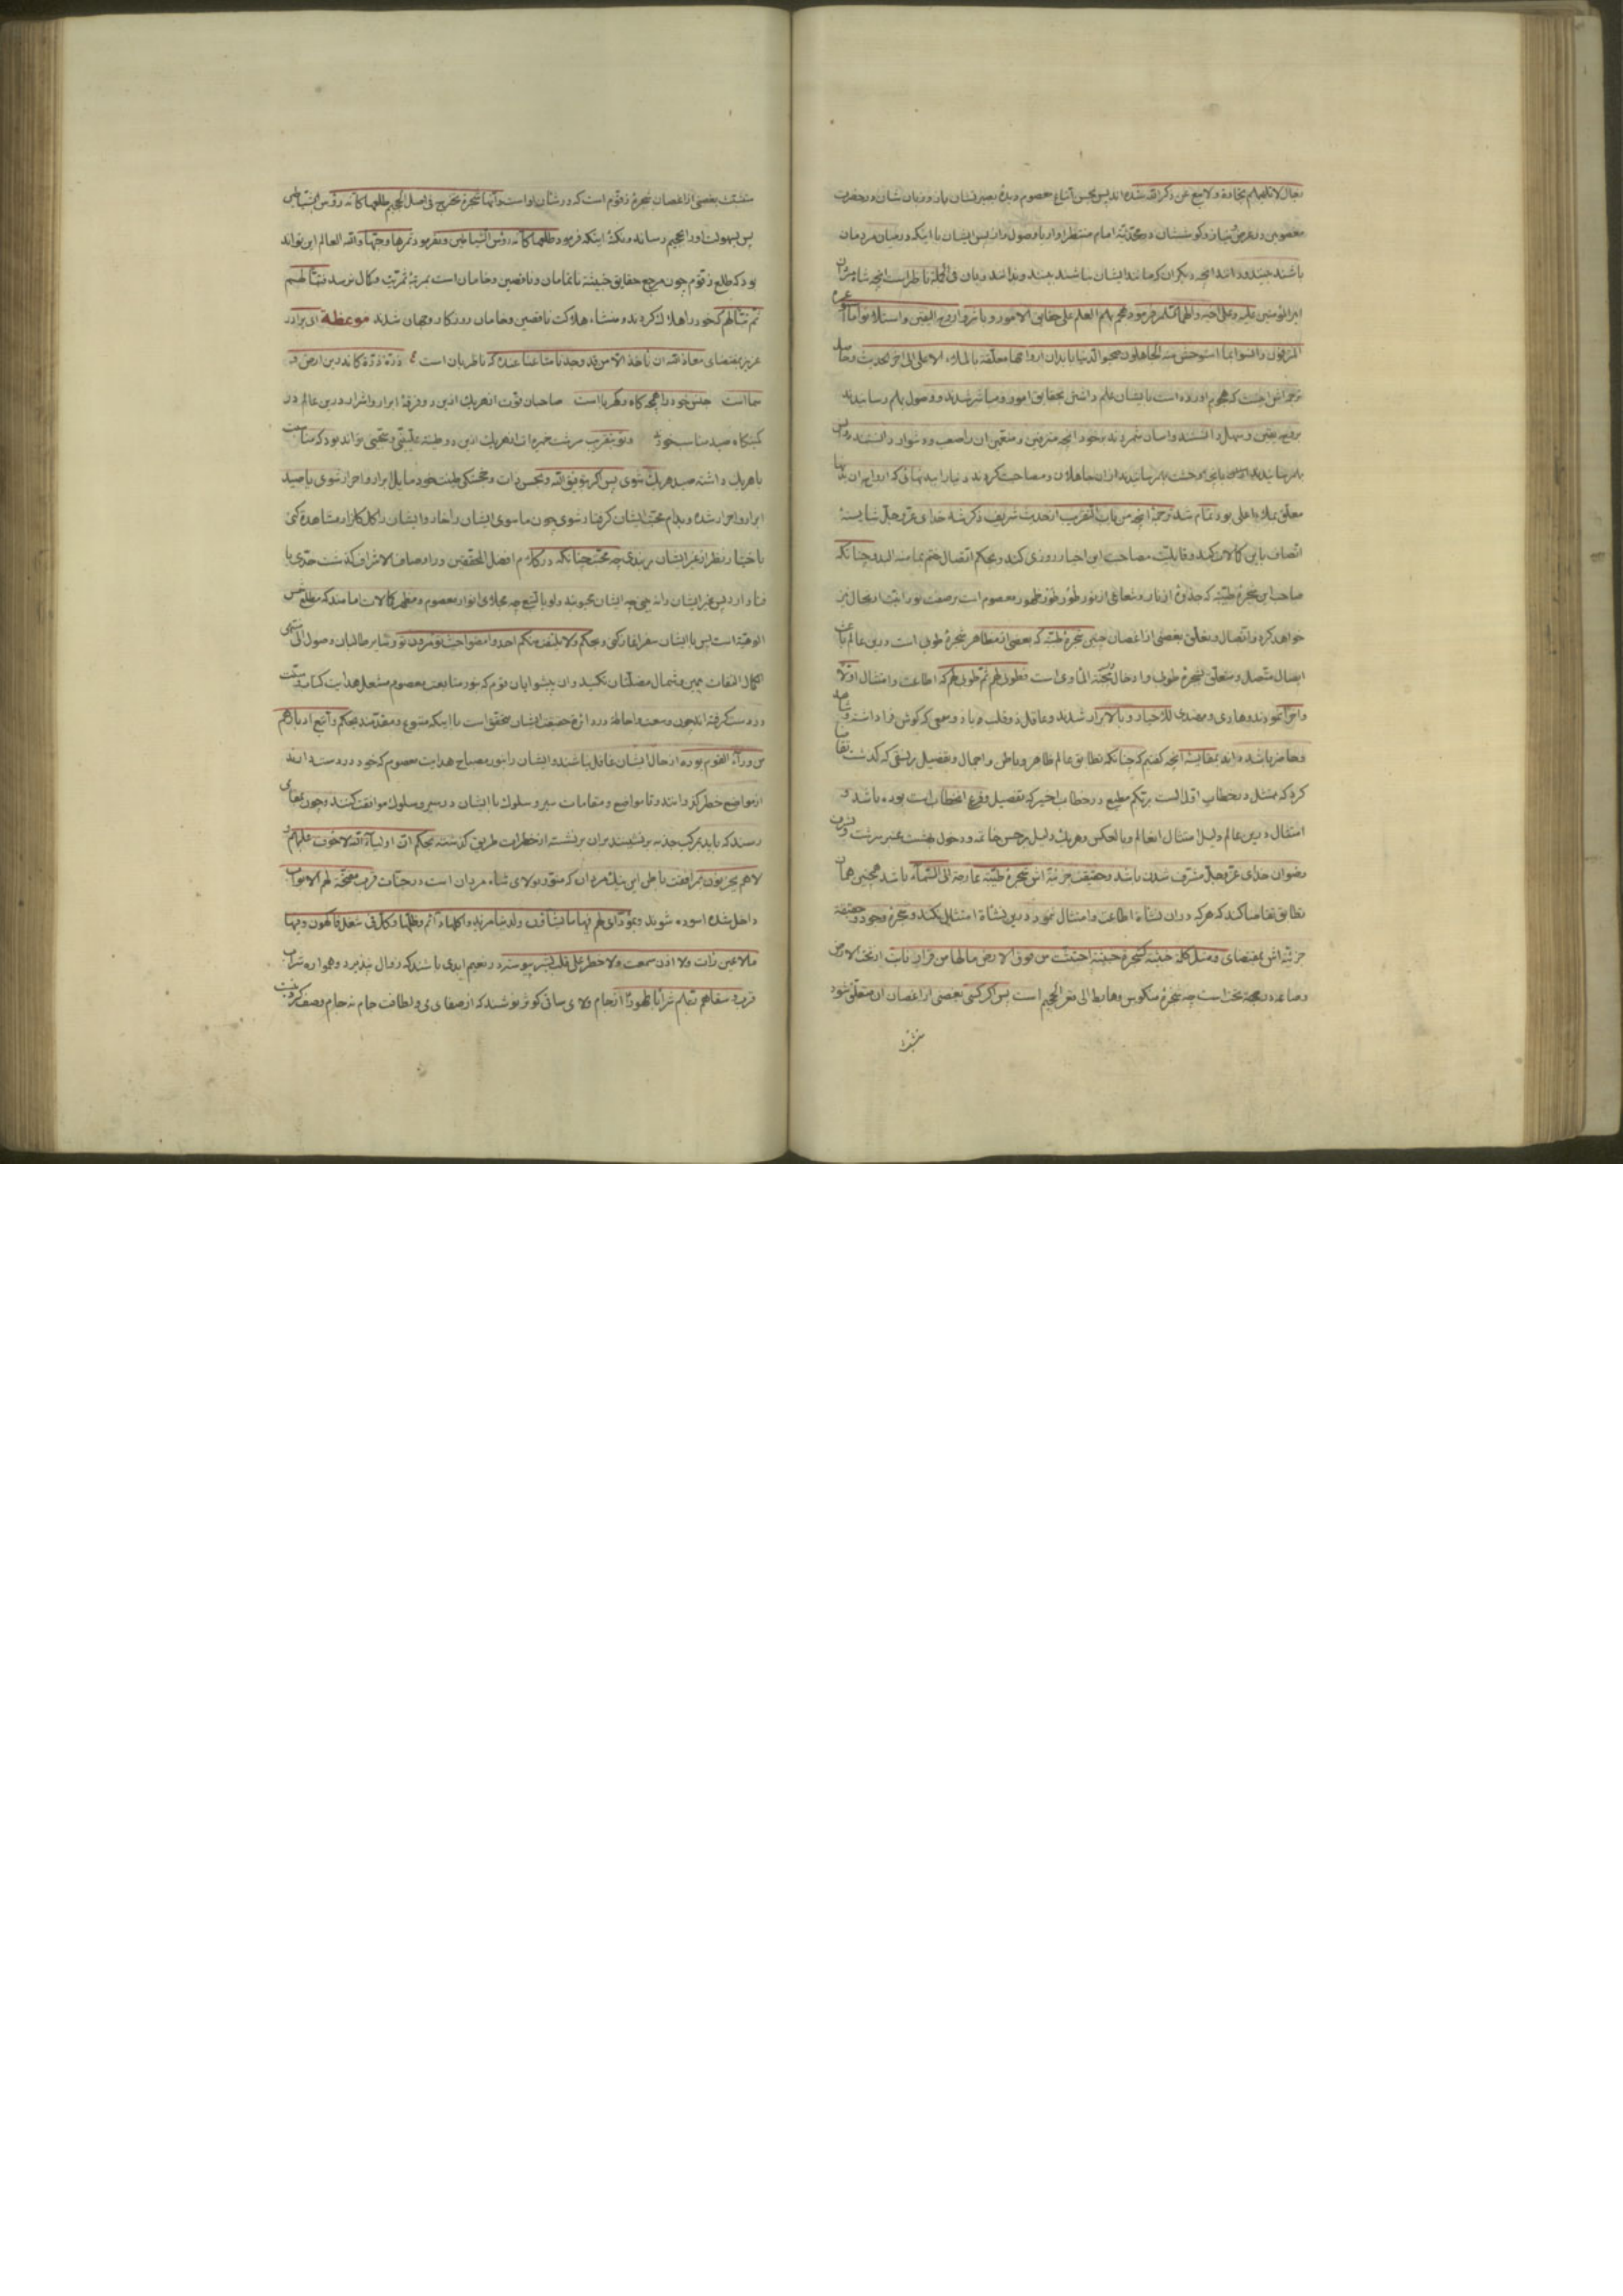 رجال لا تلهیهم تجارة ولا بیع عن ذکر الله شده اند پس بحسن اتباع معصوم دیدۀ بصیرتشان باز و زبان شان در حضرت
معصومین در عرض نیاز و کوششان در محبت امام منتظر او از با وصول راز پس ایشان با اینکه در میان مردمان
باشند بینند و دانند آنچه دیگران که مانند ایشان نباشند نبینند و ندانند
امیر المؤمنین علیه و علی اخیه و اهلهما السلام فرمود هجم بهم العلم علی حقایق الامور و باشروا روح الیقین و استلانوا ما
المترفون و انسوا بما استوحش منه الجاهلون صحبوا الدنیا بابدان ارواحها معلقة بالملاء الاعلی الی آخر الحدیث و حاصل
ترجمه اش اینست که هجوم آورده است بایشان علم دانش بحقایق امور و مباشر شدند و وصول بهم رسانیدند
بروح یقین و سهل دانستند و آسان شمردند بخود آنچه مترفین و متنعمین آن را صعب و دشوار دانستند
بهم رسانیدند از ان جاهلان و مصاحبت کردند دنیا را ببدنهائی که ارواح آن بدنها
معلق بملاء اعلی بود تمام شد ترجمۀ آنچه من باب التقریب از حدیث شریف ذکر شد خدای عز و جل شایستۀ
اتصاف باین کمالات کند و قابلیت مصاحبت این اخیار روزی کند و بحکم اتصال ختم بما منه البدء چنانکه
صاحب این شجرۀ طیبه که جذوۀ از نار و شعاعی از نور طور ظهور معصوم است بر صفت نورانیت ارتحال نیز
خواهد کرد و اتصال و تعلق ببعضی از اغصان چنین شجرۀ طیبه که بعضی از مظاهر شجرۀ طوبی است در این عالم باعث
ایصال متصل و متعلق بشجرۀ طوبی و ادخال بجنة المأوی است فطوبی لهم ثم طوبی لهم که اطاعت و امتثال اولا
و آخرا نمودند و هادی و مهتدی للاخیار و بالابرار شدند و عاقل ذو قلب و باذ و سمعی که گوش فرا داشته و شاهد
و حاضر باشد داند بمقایسۀ آنچه گفتیم که چنانکه تطابق عالم ظاهر و باطن و اجمال و تفصیل بر نسقی که گذشت تقاضا
کرد که ممتثل در خطاب اول الست بربکم مطیع در خطاب اخیر که تفصیل و فرع آن خطاب است بوده باشد و
امتثال در این عالم دلیل امتثال آن عالم و بالعکس و هر یک دلیل بر حسن خاتمه و دخول بهشت عنبر سرشت و
رضوان خدای عز و جل مشرف شدن باشد و حقیقت جزئیۀ اش شجرۀ طیبه عارجه الی السماء باشد همچنین همان
تطابق تقاضا کند که هر که در ان نشاة اطاعت و امتثال ننمود در این نشاة امتثال نکند و شجرۀ وجود و حقیقة
جزئیۀ اش بمقتضای و مثل کلمة خبیثة کشجرة خبیثة اجتثت من فوق الارض ما لها من قرار نابت از تحت الارض
و صاعد در جهة تحت است چه شجرۀ منکوس و هابط الی قعر الجحیم است پس اگر کسی ببعضی از اغصان آن متعلق شود
متشبث ببعضی از اغصان شجرۀ زقوم است که در شأن او است و انها شجرة تخرج فی اصل الجحیم طلعها کانه رؤس الشیاطین
پس بسهولت او را بجحیم رساند و نکتۀ اینکه فرمود طلعها کانه رؤس الشیاطین و نفرمود ثمرها و حبها و الله العالم این تواند
بود که طلع زقوم چون مرجع حقایق خبیثه ناتمامان و ناقصین و خامان است بمرتبۀ ثمریت و کمال نرسد فتبا لهم
ثم تبا لهم که خود را هلاک کردند و منشاء هلاکت ناقصین و خامان روزگار و جهان شدند موعظة ای برادر
عزیز بمقتضای معاذ الله ان ناخذ الا من قد وجدنا متاعنا عنده که ناظر بان است ع ذرة ذرة کاندرین ارض و
سما است جنس خود را همچو کاه و کهرباست صاحبان قوت از هر یک ازین دو فرقۀ ابرار و اشرار در این عالم در
کمینگاه صید مناسب خود و تو بتقریب سرشت خمیره ات از هر یک ازین دو طینت علیینی و سجینی تواند بود که مناسبت
با هر یک داشته صید هر یک شوی پس اگر بتوفیق الله و بحسن ذات و خجستگی طینت خود مایل ابرار و احرار شوی یا صید
ابرار و احرار شده و بدام محبت ایشان گرفتار شوی چون ما سوی ایشان را خار و ایشان را گل گلزار مشاهده کنی
باختیار نظر از غیر ایشان بر بندی چه محبت چنانکه در کلام افضل المحققین در اوصاف الاشراف گذشت حدی با
الوهیة است پس با ایشان سفر اختیار کنی و بحکم و لا یلتفت منکم احد و امضوا حیث تؤمرون تو و سایر طالبان وصول الی منتهی
الکمال التفات بیمین و شمال مضلتان نکنید و ان پیشوایان قوم که نور متابعت معصوم مشعل هدایت
در دست گرفته اند چون وسعت و احاطۀ در دائرۀ حقیقت ایشان متحقق است با اینکه متبوع و مقدمند بحکم و اتبع ادبارهم
من وراء القوم بوده از حال ایشان غافل نباشند و ایشان را بنور مصباح هدایت معصوم که خود در دست دارند
از مواضع خطر گذرانند و تا مواضع و مقامات سیر و سلوک با ایشان در سیر و سلوک موافقت کنند و چون بمقامی
رسند که باید بمرکب جذبه بر نشینند بران بر نشسته از خطرات طریق گذشته بحکم ان اولیاء الله لا خوف علیهم و
لا هم یحزنون بمرافقت باطن این نیک مردان که منور بولای شاه مردان است در جنات قرب مفتحة لهم الابواب
داخل شده آسوده شوند و بمؤدای لهم فیها ما یشاؤن و لدینا مزید و اکلها دائم و ظلها و کل فی شغل فاکهون و فیها
ما لا عین رأت و لا اذن سمعت و لا خطر علی قلب بشر پیوسته در نعیم ابدی باشند که زوال نپذیرد و همواره شراب
قرب و سقاهم ربهم شرابا طهورا از جام ولای ساقی کوثر نوشند که از صفای می و لطافت جام نه جام وصف